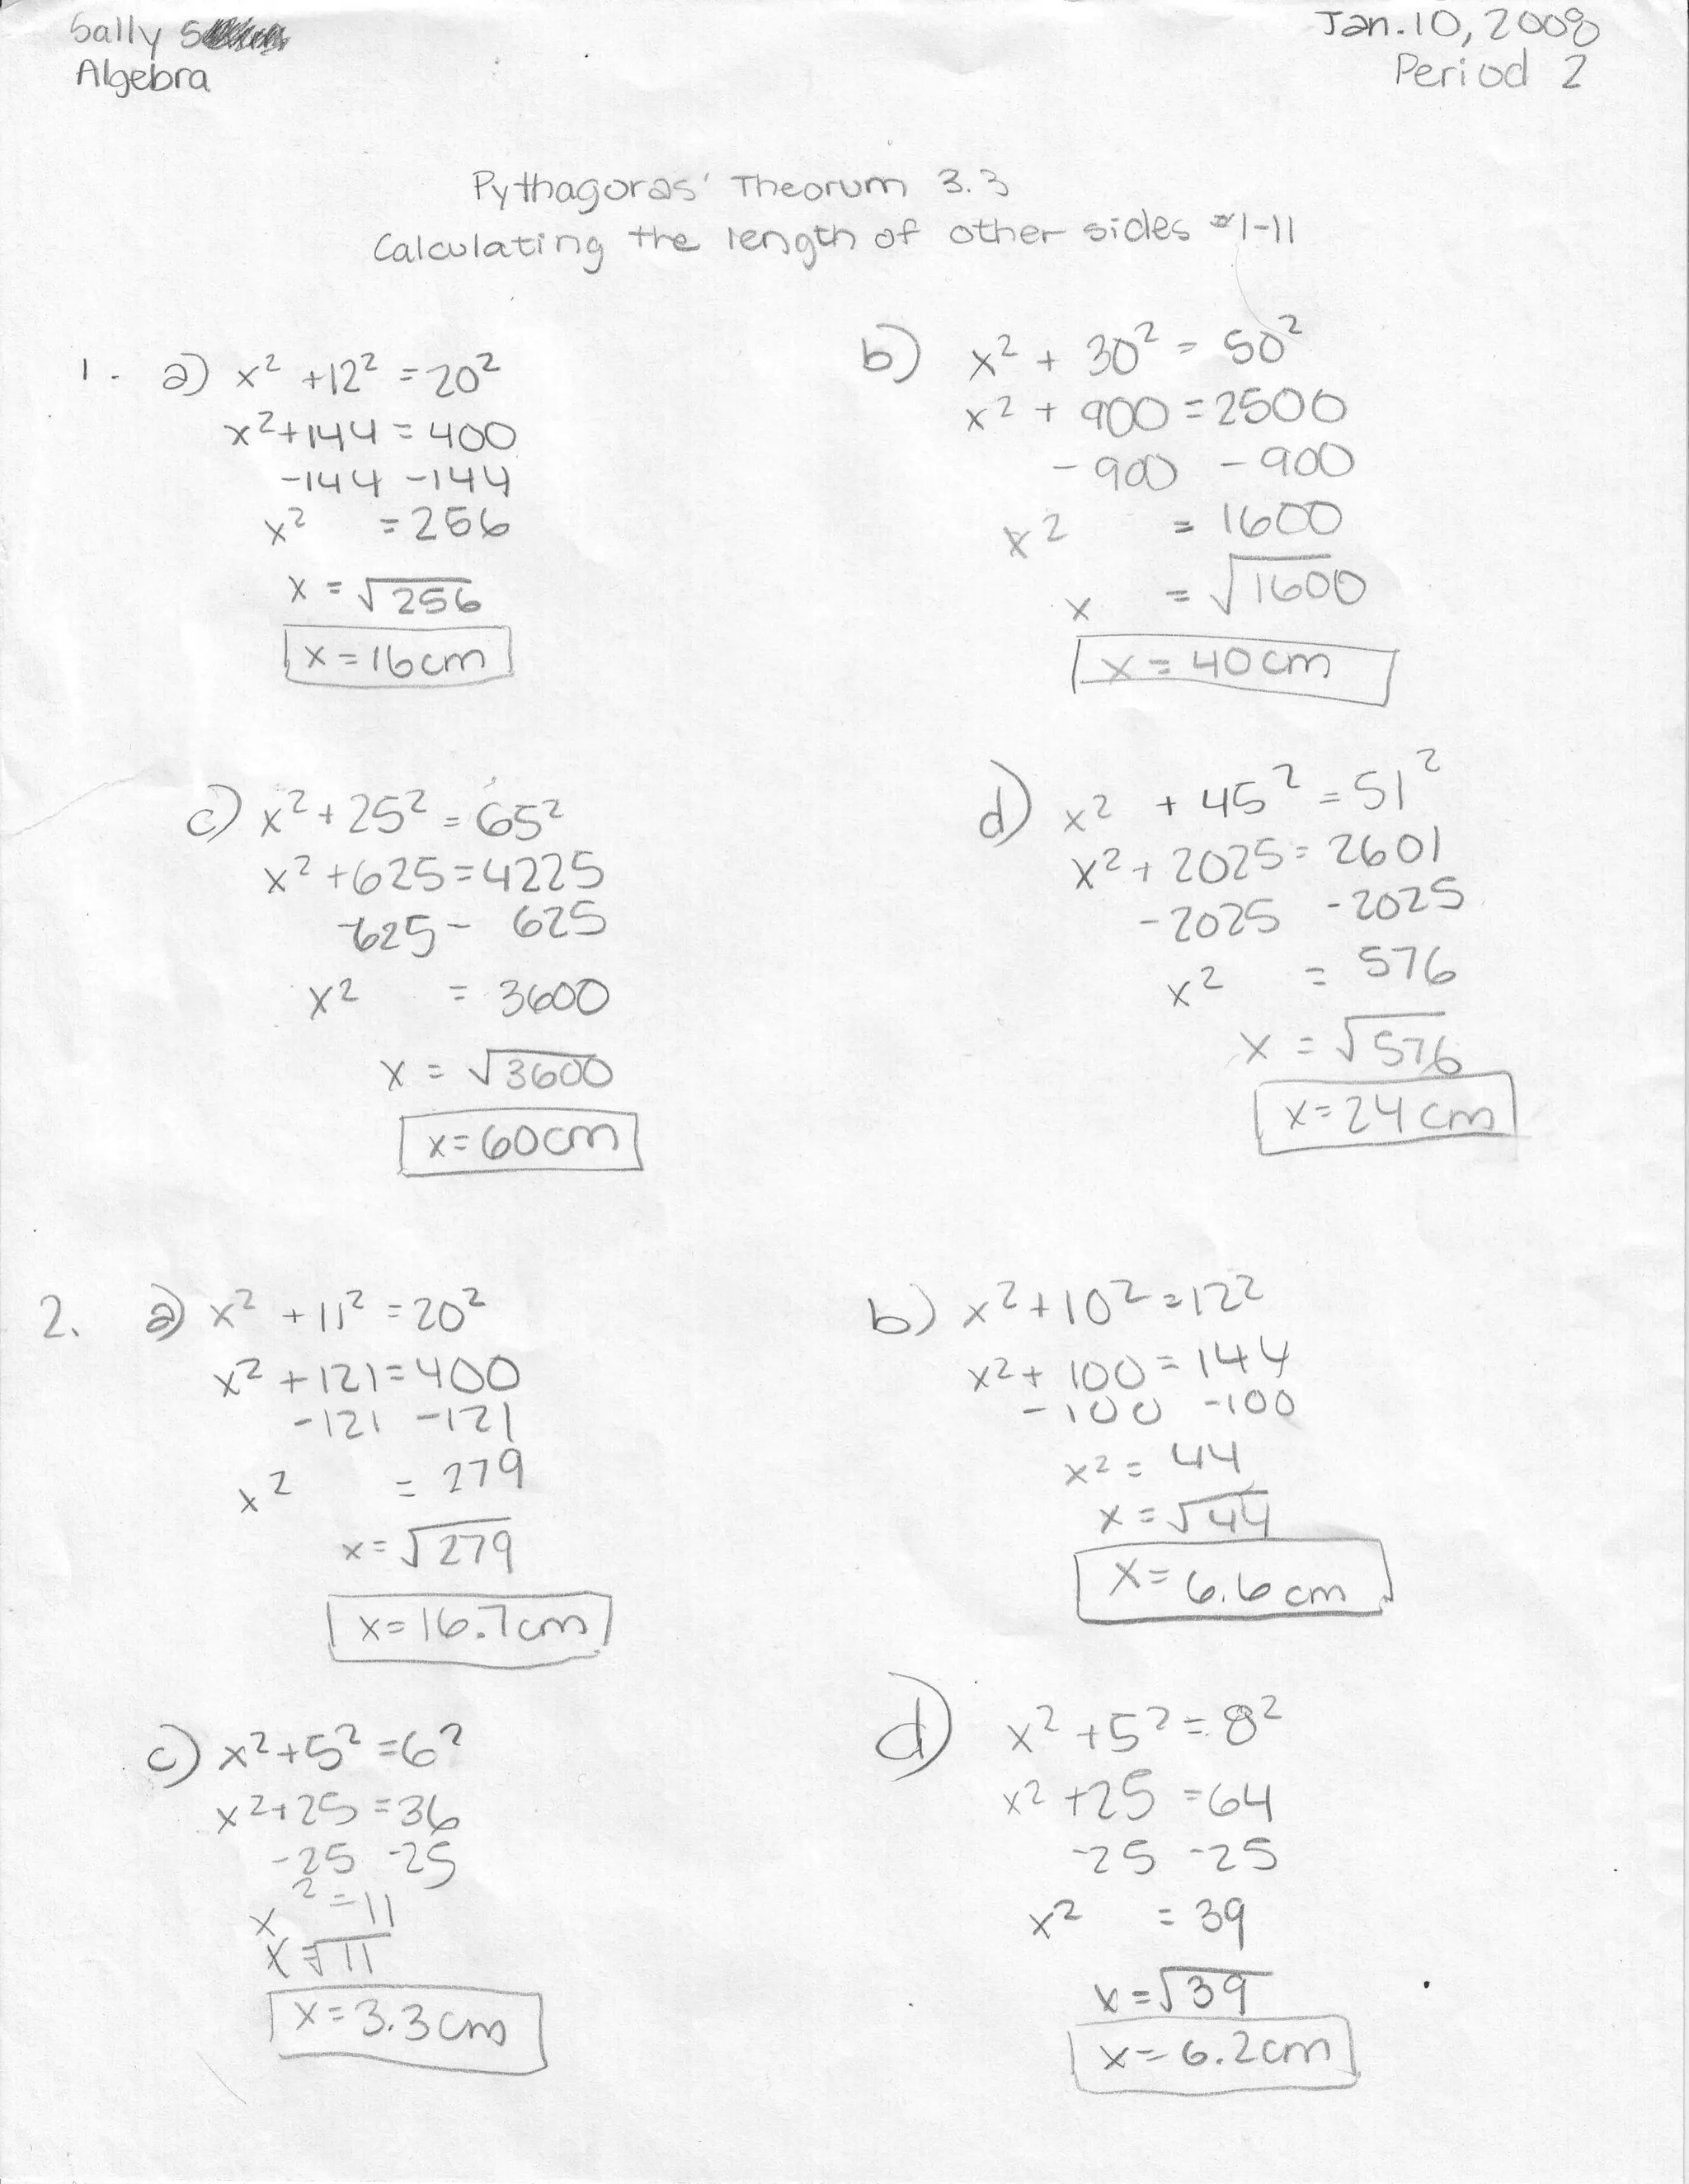 Sally S
Algebra
Jan. 10, 2008
Period 2
Pythagoras' Theorum 3.3
Calculating the length of other sides #1-11
1. a) x² + 12² = 20²
x² + 144 = 400
-144 -144
x² = 256
x = √256
x = 16cm
b) x² + 30² = 50²
x² + 900 = 2500
- 900 - 900
x² = 1600
x = √1600
x = 40cm
c) x² + 25² = 65²
x² + 625 = 4225
-625 - 625
x² = 3600
x = √3600
x = 60cm
d) x² + 45² = 51²
x² + 2025 = 2601
-2025 -2025
x² = 576
x = √576
x = 24cm
2. a) x² + 11² = 20²
x² + 121 = 400
-121 -121
x² = 279
x = √279
x = 16.7cm
b) x² + 10² = 12²
x² + 100 = 144
-100 -100
x² = 44
x = √44
x = 6.6cm
c) x² + 5² = 6²
x² + 25 = 36
-25 -25
x² = 11
x = √11
x = 3.3cm
d) x² + 5² = 8²
x² + 25 = 64
-25 -25
x² = 39
x = √39
x = 6.2cm